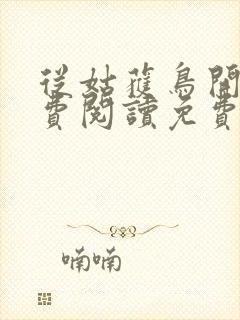 從姑蘿鳥開
費閱讀免費
喃喃